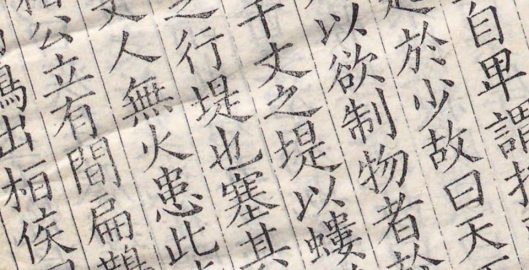 自卑謂
起於少故曰天
以欲制物者於
千丈之堤以螻
之行堤也塞其
丈人無火患此
桓公立有間扁鵲
出桓侯